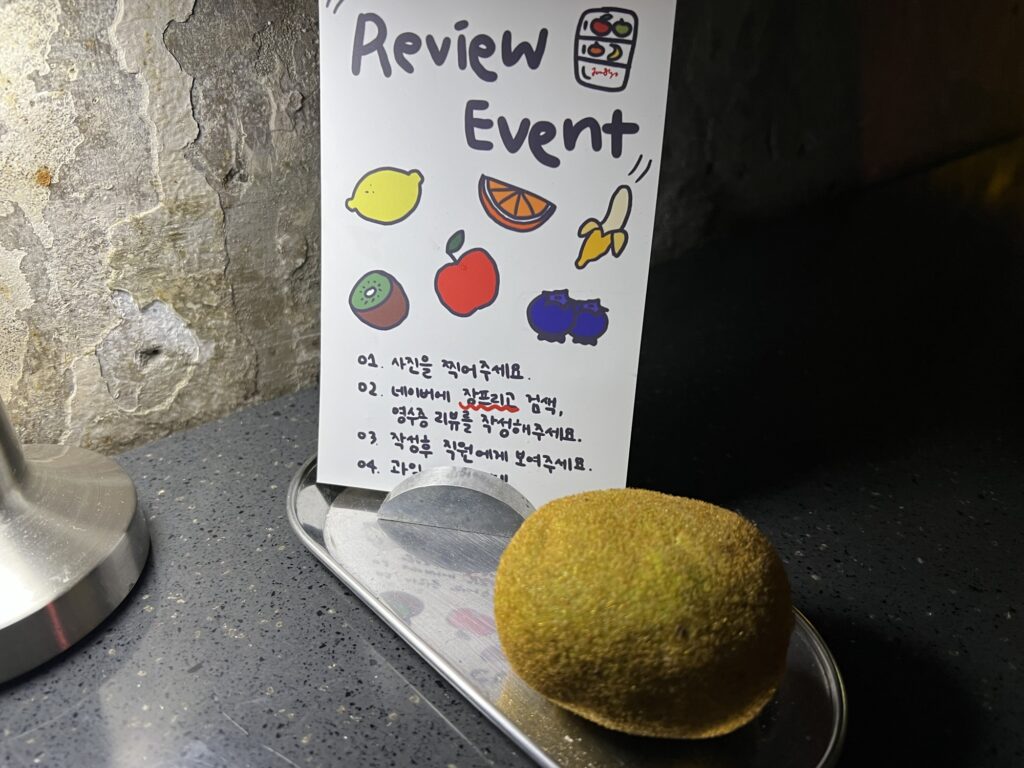 Review
Event
01. 사진을 찍어주세요.
02. 네이버에 잠프리고 검색,
영수증 리뷰를 작성해주세요.
03. 작성후 직원에게 보여주세요.
04.